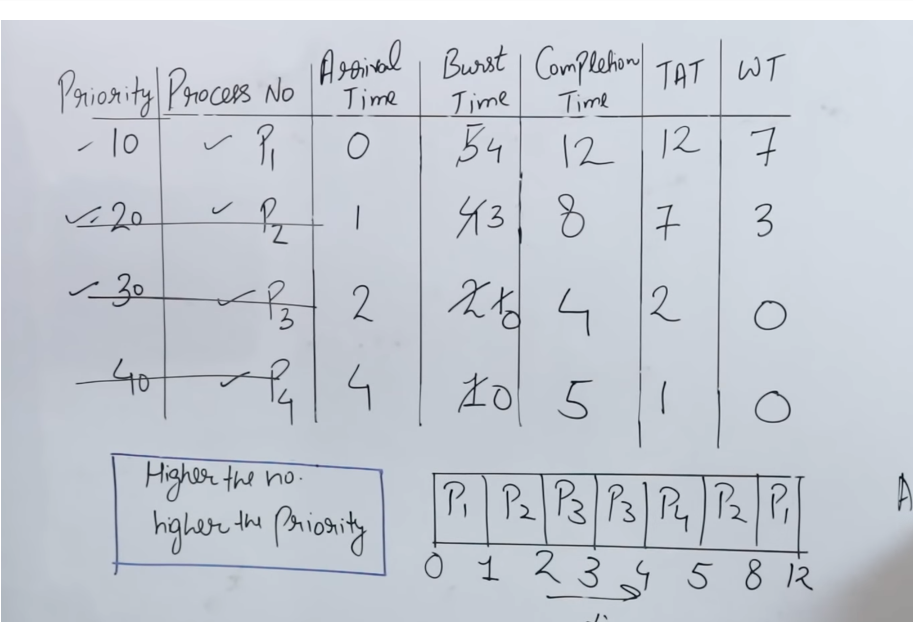 Priority Process No Arrival Time Burst Time Completion Time TAT WT
10 P1 0 5 4 12 12 7
20 P2 1 4 3 8 7 3
30 P3 2 2 1 0 4 2 0
40 P4 4 1 0 5 1 0
Higher the no.
higher the Priority
P1 P2 P3 P3 P4 P2 P1
0 1 2 3 4 5 8 12
A